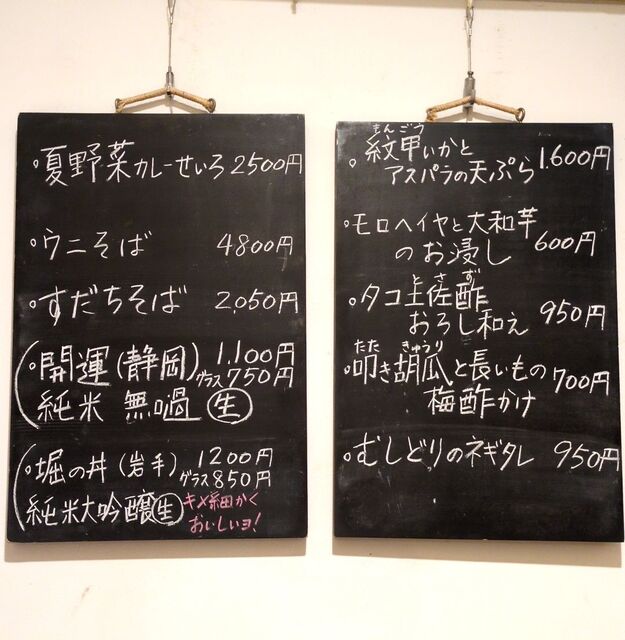 。夏野菜カレーせいろ 2500円
。ウニそば 4800円
。すだちそば 2,050円
。開運(静岡) 1,100円
グラス750円
純米 無濾過 生
。堀の井(岩手) 1200円
グラス850円
純米大吟醸 生
キメ細かく
おいしいヨ!
もんごう
。紋甲いかと
アスパラの天ぷら 1,600円
。モロヘイヤと大和芋
のお浸し 600円
とさず
。タコ土佐酢
おろし和え 950円
たた きゅうり
。叩き胡瓜と長いもの 700円
梅酢かけ
。むしどりのネギタレ 950円